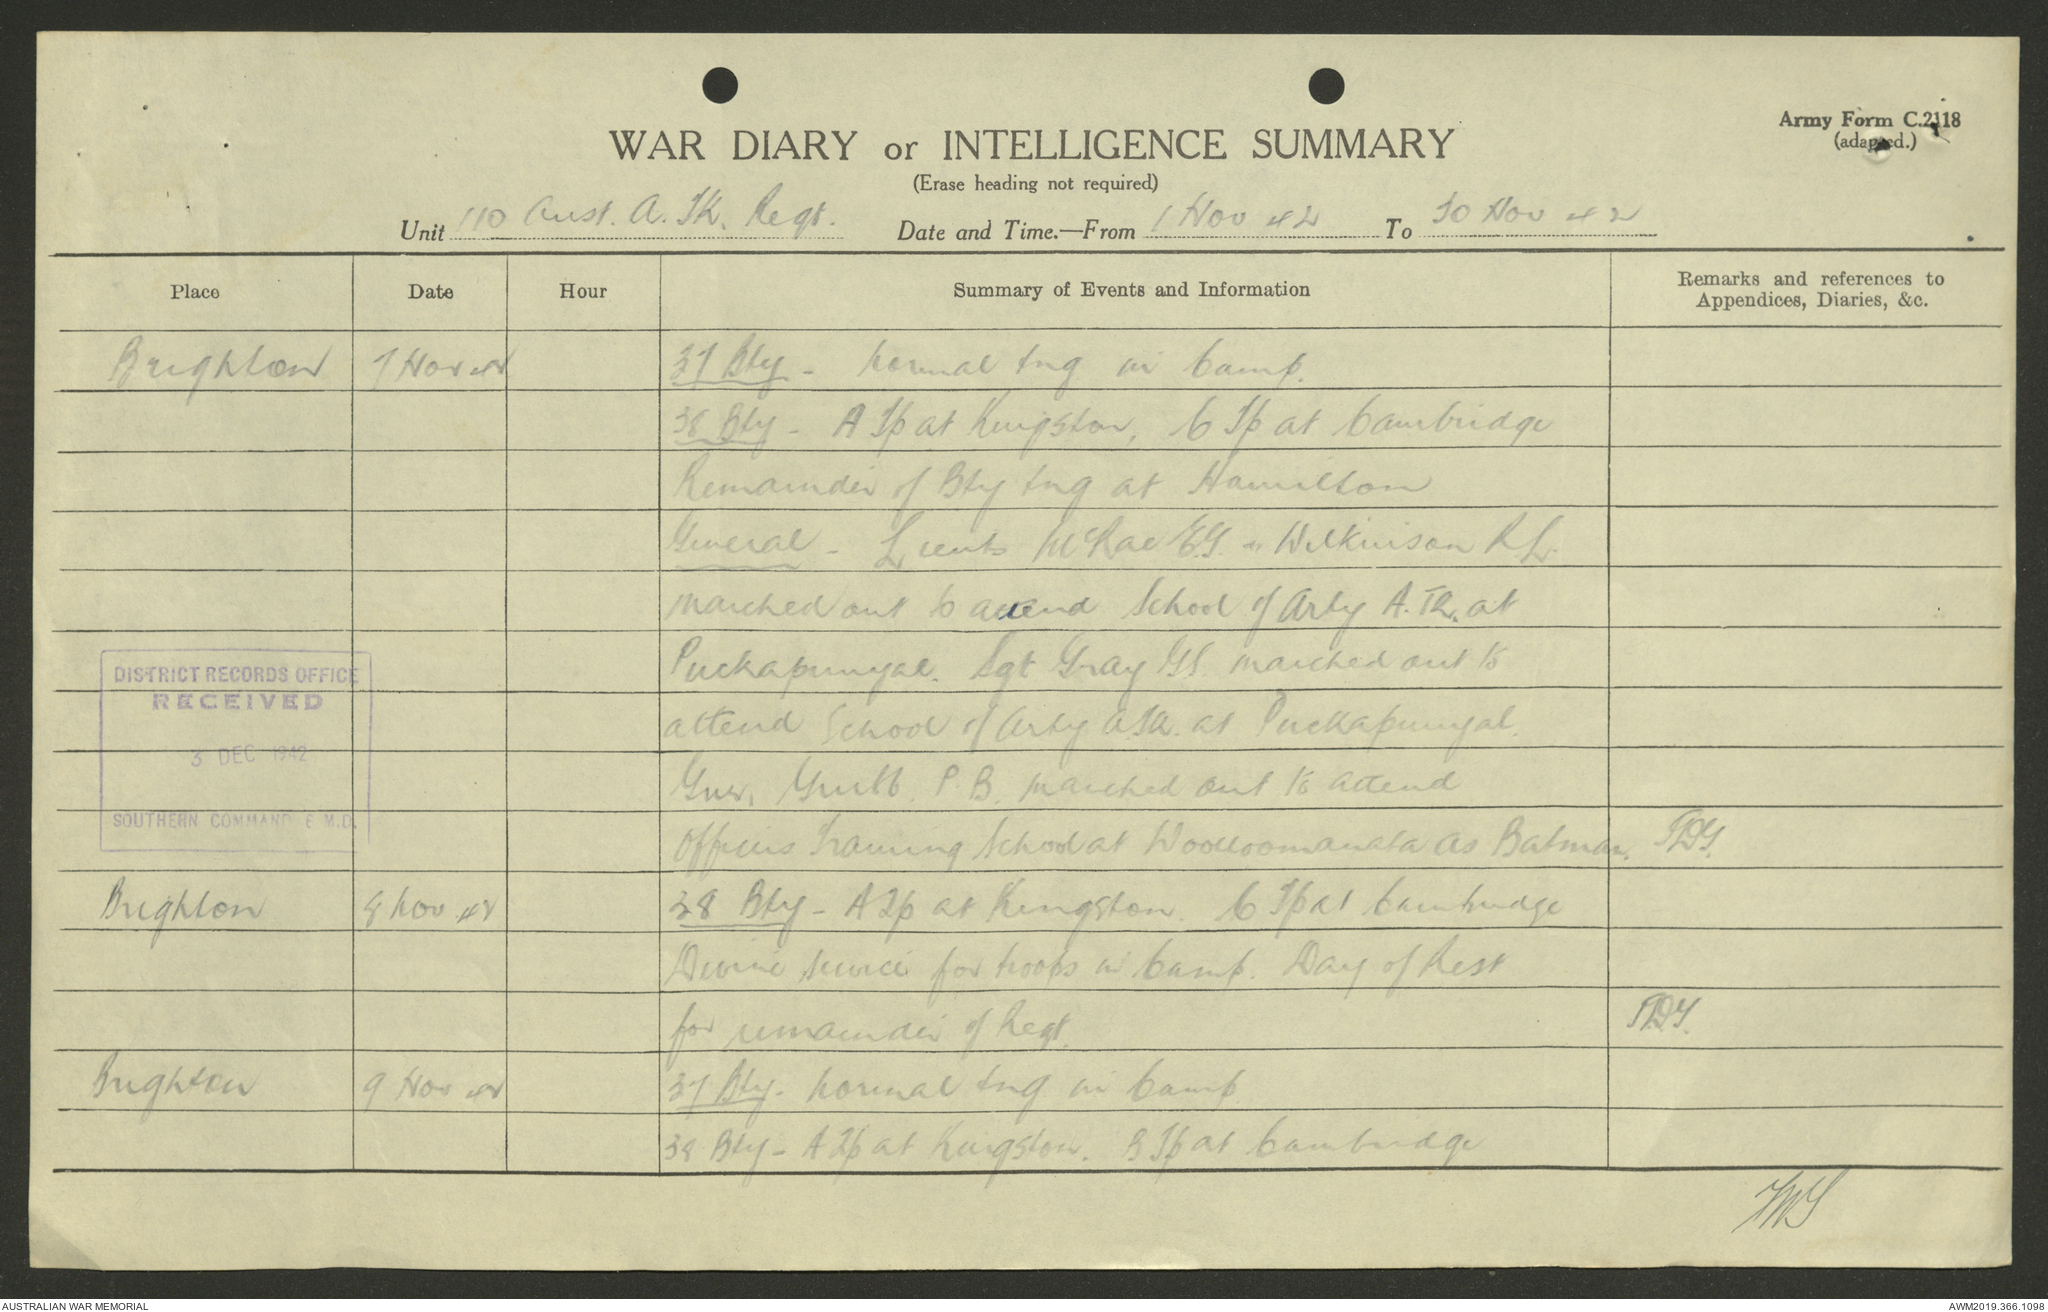 Army Form C.2118
(adapted.)
WAR DIARY or INTELLIGENCE SUMMARY
(Erase heading not required)
Unit 110 Aust. A. TK. Regt. Date and Time.—From 1 Nov 42 To 30 Nov 42
Place Date Hour Summary of Events and Information Remarks and references to Appendices, Diaries, &c.
Brighton 7 Nov 42 37 Bty - Normal tng in Camp.
38 Bty - A Tp at Kingston, C Tp at Cambridge
Remainder of Bty tng at Hamilton
General - Lieuts McRae E.G. Wilkinson R.L.
marched out to attend School of Arty A. TK. at
Puckapunyal. Sgt Gray G.S. marched out to
attend School of Arty A.TK. at Puckapunyal.
Gnr. P.B. marched out to attend
Officers Training School at Woolloomanata as Batman. TDG.
Brighton 8 Nov 42 38 Bty - A Tp at Kingston. C Tp at Cambridge
Divine service for troops in Camp. Day of Rest
for remainder of Regt. TDG.
Brighton 9 Nov 42 37 Bty. Normal tng in Camp
38 Bty - A Tp at Kingston. B Tp at Cambridge
DISTRICT RECORDS OFFICE
RECEIVED
3 DEC 1942
SOUTHERN COMMAND 6 M.D.
AUSTRALIAN WAR MEMORIAL
AWM2019.366.1098